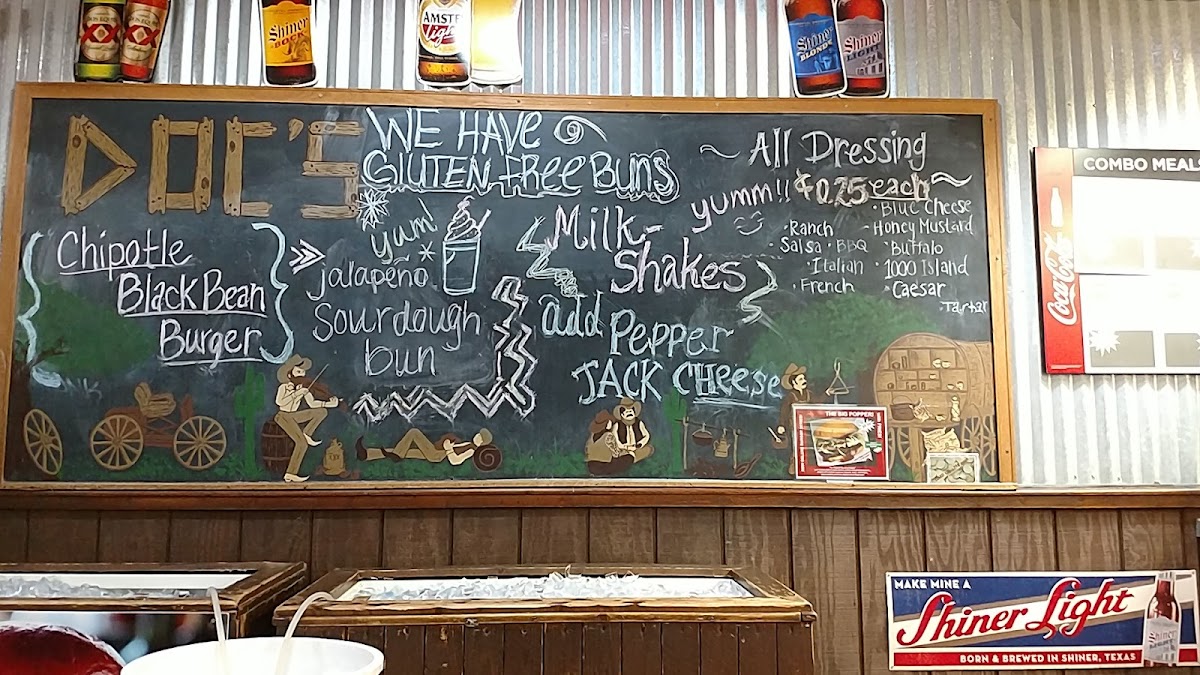 XX
XX
Shiner
BOCK
AMSTEL
Light
Shiner
BLONDE
Shiner
LIGHT
DOC'S
WE HAVE
GLUTEN FREE BUNS
Chipotle
Black Bean
Burger
yum!
jalapeño
Sourdough
bun
Milk-
Shakes
add Pepper
JACK CHeese
~ All Dressing
yumm!! $0.25 each ~
· Blue cheese
· Ranch
- Honey Mustard
· Salsa · BBQ
· Buffalo
· Italian
· 1000 Island
· French
· Caesar
· Tartar
THE BIG POPPER!
COMBO MEALS
Coca-Cola
MAKE MINE A
Shiner Light
BORN & BREWED IN SHINER, TEXAS
Shiner